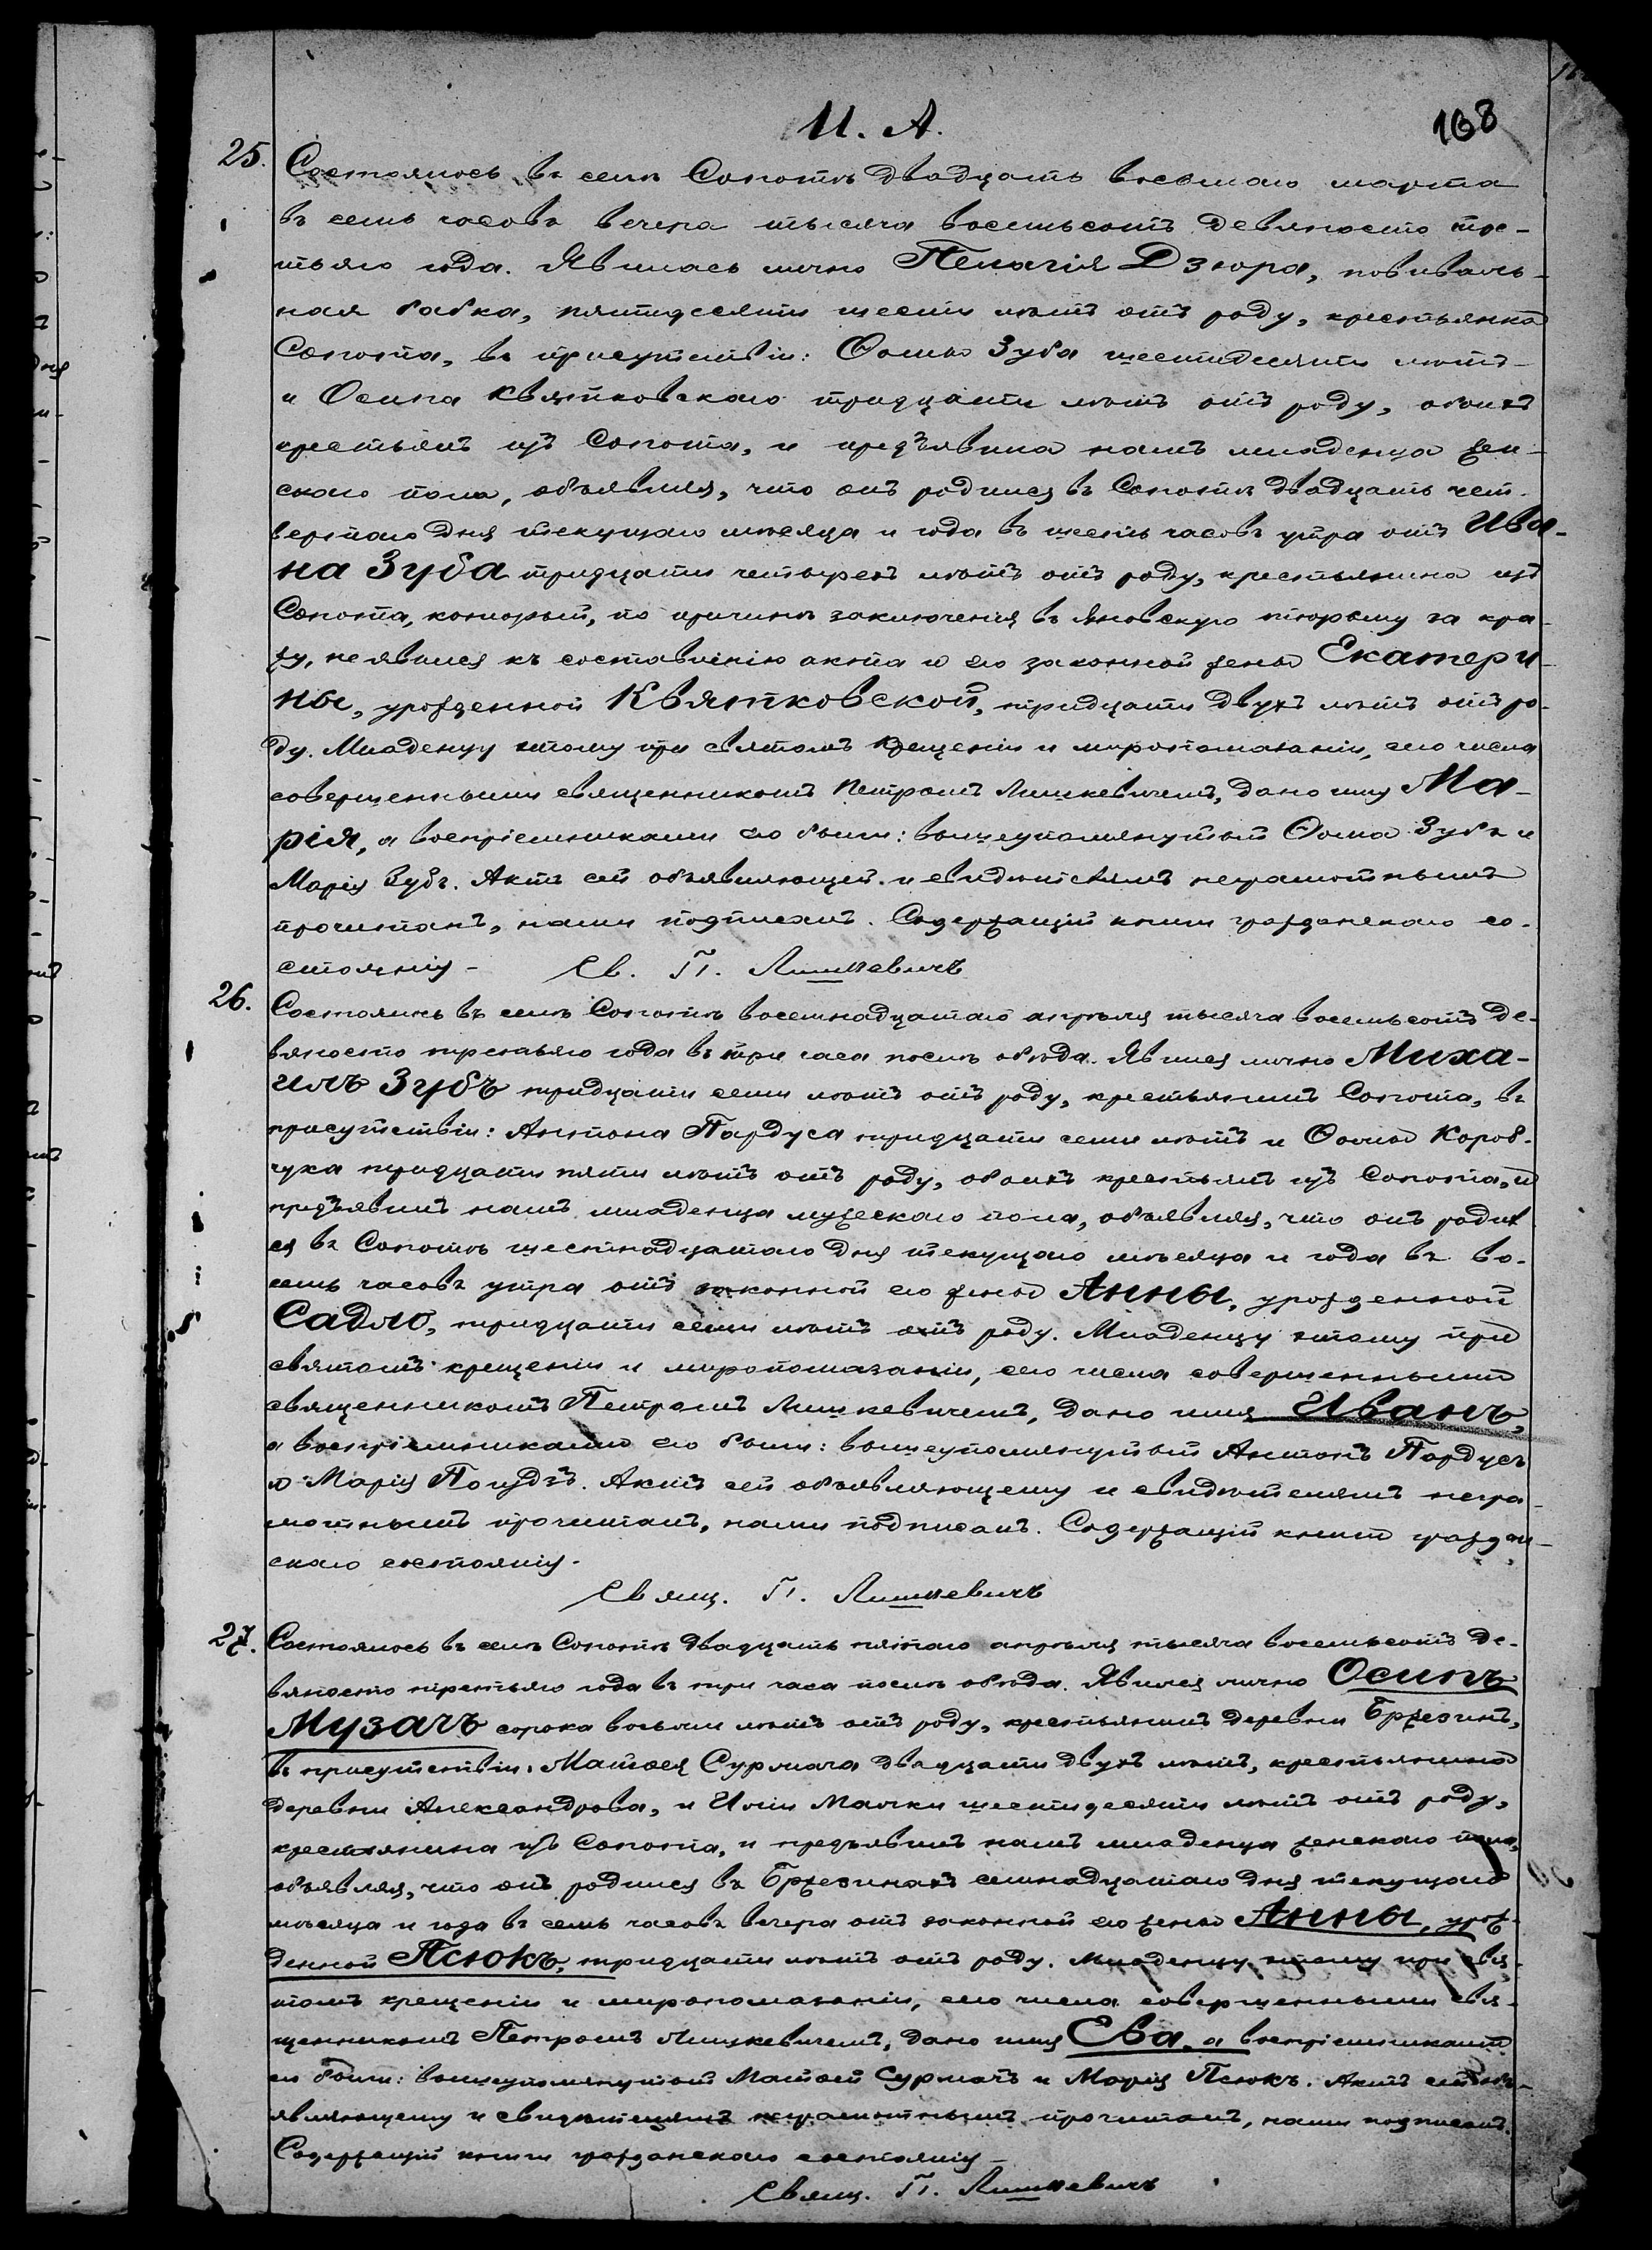 М. А.
168
25. Состоялось въ селѣ Сопотѣ двадцать восьмаго марта
въ семь часовъ вечера тысяча восемьсотъ девяносто тре-
тьяго года. Явилась лично Пелагія Дзюра, повиваль-
ная бабка, пятидесяти шести лѣтъ отъ роду, крестьянка
Сопота, въ присутствіи: Ѳомы Зуба шестидесяти лѣтъ
и Осипа Квятковскаго тридцати лѣтъ отъ роду, обоихъ
крестьянъ изъ Сопота, и предъявила намъ младенца жен-
скаго пола, объявляя, что онъ родился въ Сопотѣ двадцать чет-
вертаго дня текущаго мѣсяца и года въ шесть часовъ утра отъ Ива-
на Зуба тридцати четырехъ лѣтъ отъ роду, крестьянина изъ
Сопота, который, по причинѣ заключенія въ Яновскую тюрьму за кра-
жу, не явился къ составленію акта и его законной жены Екатери-
ны, урожденной Квятковской, тридцати двухъ лѣтъ отъ ро-
ду. Младенцу этому при святомъ крещеніи и миропомазаніи, сего числа
совершенными священникомъ Петромъ Лишкевичемъ, дано имя Ма-
рія, а воспріемниками его были: вышеупомянутый Ѳома Зубъ и
Марія Зубъ. Актъ сей объявляющей и свидѣтелямъ неграмотнымъ
прочитанъ, нами подписанъ. Содержащій книги гражданскаго со-
стоянія - Св. П. Лишкевичъ
26. Состоялось въ селѣ Сопотѣ восемнадцатаго апрѣля тысяча восемьсотъ де-
вяносто третьяго года въ три часа послѣ обѣда. Явился лично Миха-
илъ Зубъ тридцати семи лѣтъ отъ роду, крестьянинъ Сопота, въ
присутствіи: Антона Пардуса тридцати семи лѣтъ и Ѳомы Короб-
чука тридцати пяти лѣтъ отъ роду, обоихъ крестьянъ изъ Сопота, и
предъявилъ намъ младенца мужескаго пола, объявляя, что онъ родил
ся въ Сопотѣ шестнадцатаго дня текущаго мѣсяца и года въ во-
семь часовъ утра отъ законной его жены Анны, урожденной
Садло, тридцати семи лѣтъ отъ роду. Младенцу этому при
святомъ крещеніи и миропомазаніи, сего числа совершенными
священникомъ Петромъ Лишкевичемъ, дано имя Иванъ,
а воспріемниками его были: вышеупомянутый Антонъ Пардусъ
и Марія . Актъ сей объявляющему и свидѣтелямъ негра-
мотнымъ прочитанъ, нами подписанъ. Содержащій книги граждан-
скаго состоянія.
Свящ. П. Лишкевичъ
27. Состоялось въ селѣ Сопотѣ двадцать пятаго апрѣля тысяча восемьсотъ де-
вяносто третьяго года въ три часа послѣ обѣда. Явился лично Осипъ
Музачъ сорока восьми лѣтъ отъ роду, крестьянинъ деревни Бржезинъ,
въ присутствіи: Матѳея Сурмача двадцати двухъ лѣтъ, крестьянина
деревни Александрова, и Иліи Малки шестидесяти лѣтъ отъ роду,
крестьянина изъ Сопота, и предъявилъ намъ младенца женскаго пола,
объявляя, что онъ родился въ Бржезинахъ семнадцатаго дня текущаго
мѣсяца и года въ семь часовъ вечера отъ законной его жены Анны, урож-
денной Псюкъ, тридцати лѣтъ отъ роду. Младенцу этому при свя-
томъ крещеніи и миропомазаніи, сего числа совершенными свя-
щенникомъ Петромъ Лишкевичемъ, дано имя Ева, а воспріемниками
ея были: вышеупомянутый Матѳей Сурмачъ и Марія Псюкъ. Актъ сей объ-
являющему и свидѣтелямъ неграмотнымъ прочитанъ, нами подписанъ.
Содержащій книги гражданскаго состоянія -
Свящ. П. Лишкевичъ